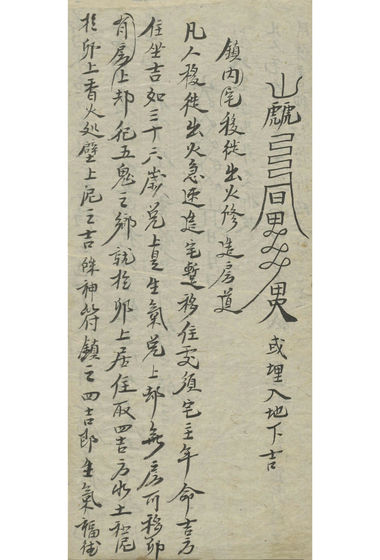 或埋入地下吉
鎮内宅移徙出火修造房道
凡人移徙出火急速造宅暫移住處須宅主年命吉方
住坐吉如三十六歲兌上是生氣兌上却無房可移卯
有房上却犯五鬼之鄉就於卯上居住取四吉方水土和泥
於卯上香火处壁上泥之吉神符鎮之四吉即生氣福德